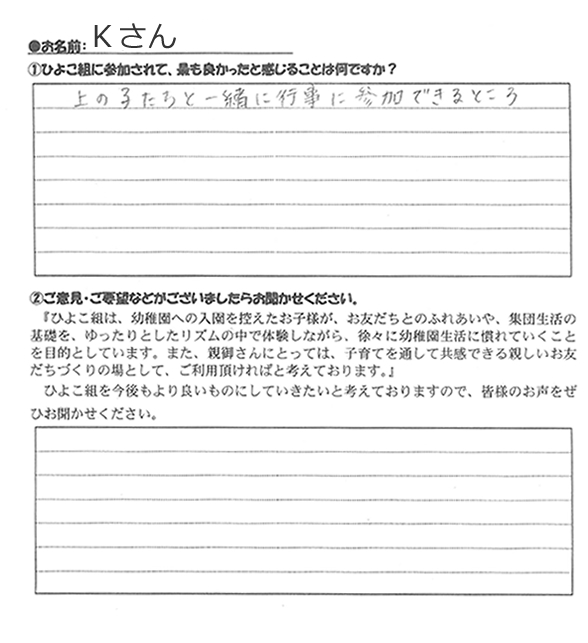 ●お名前: Kさん
①ひよこ組に参加されて、最も良かったと感じることは何ですか？
上の子たちと一緒に行事に参加できるところ
②ご意見・ご要望などがございましたらお聞かせください。
『ひよこ組は、幼稚園への入園を控えたお子様が、お友だちとのふれあいや、集団生活の
基礎を、ゆったりとしたリズムの中で体験しながら、徐々に幼稚園生活に慣れていくこと
を目的としています。また、親御さんにとっては、子育てを通して共感できる親しいお友
だちづくりの場として、ご利用頂ければと考えております。』
ひよこ組を今後もより良いものにしていきたいと考えておりますので、皆様のお声をぜ
ひお聞かせください。